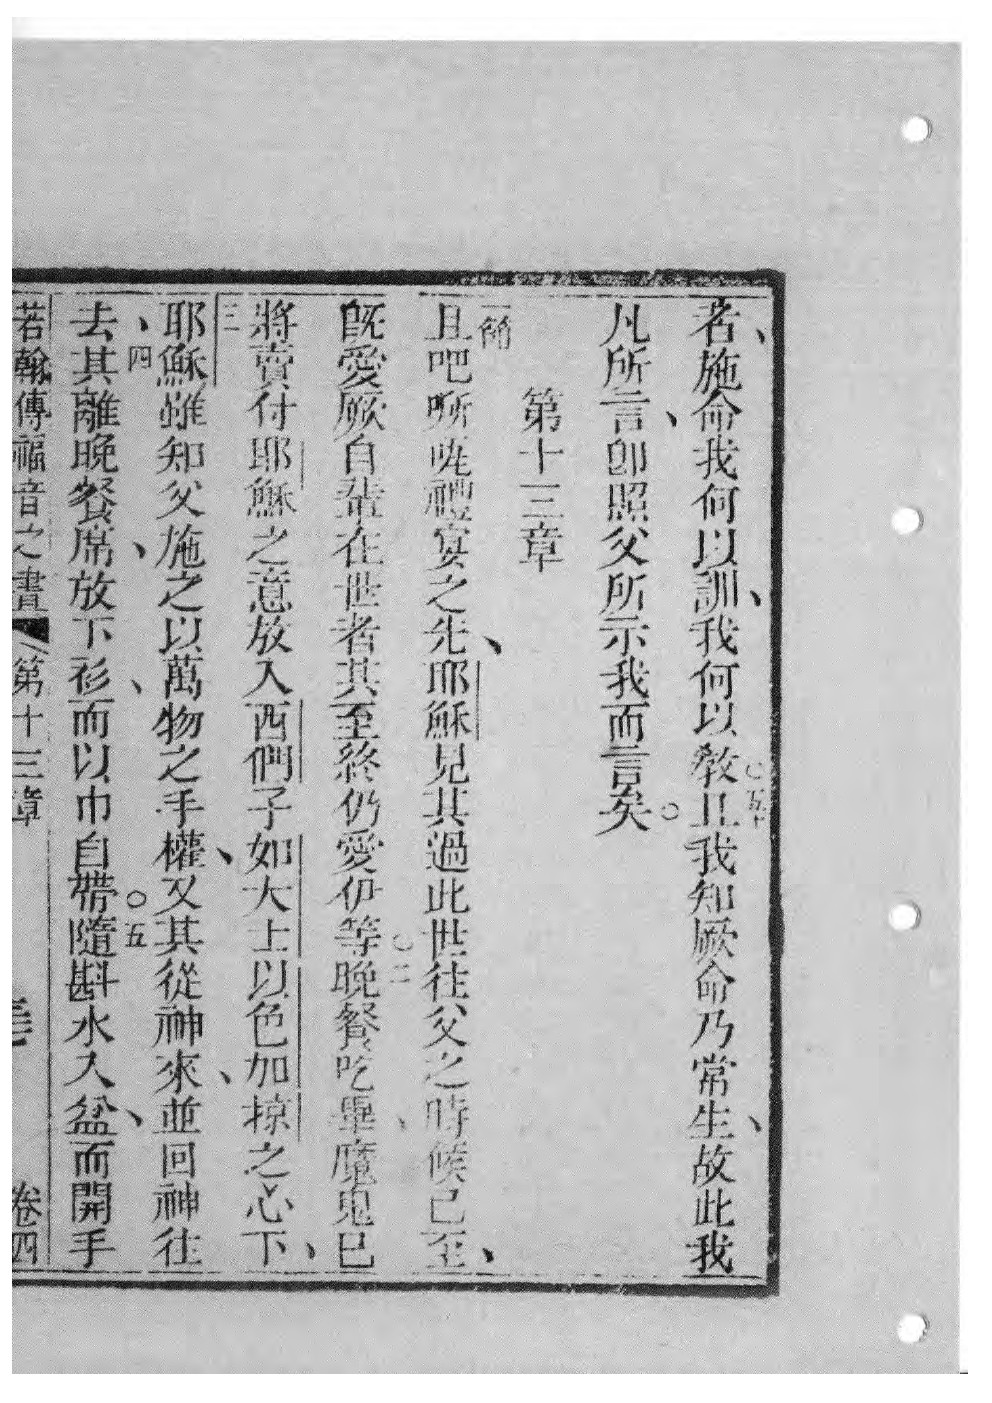 者、施命我何以訓、我何以敎○五十且我知厥命乃常生、故此我
凡所言、卽照父所示我而言矣○
第十三章
一節且吧㗭𠯈禮宴之先、耶穌見其過此世往父之時候已至、
旣愛厥自輩在世者其至終仍愛伊等○二晚餐吃畢、魔鬼已
將賣付耶穌之意放入西們子如大士以色加掠之心下、
三耶穌雖知父施之以萬物之手權、又其從神來、並回神往
、四去其離晚餐席、放下衫、而以巾自帶○五隨斟水入盆、而開手
若翰傳福音之書 第十三章 卷四